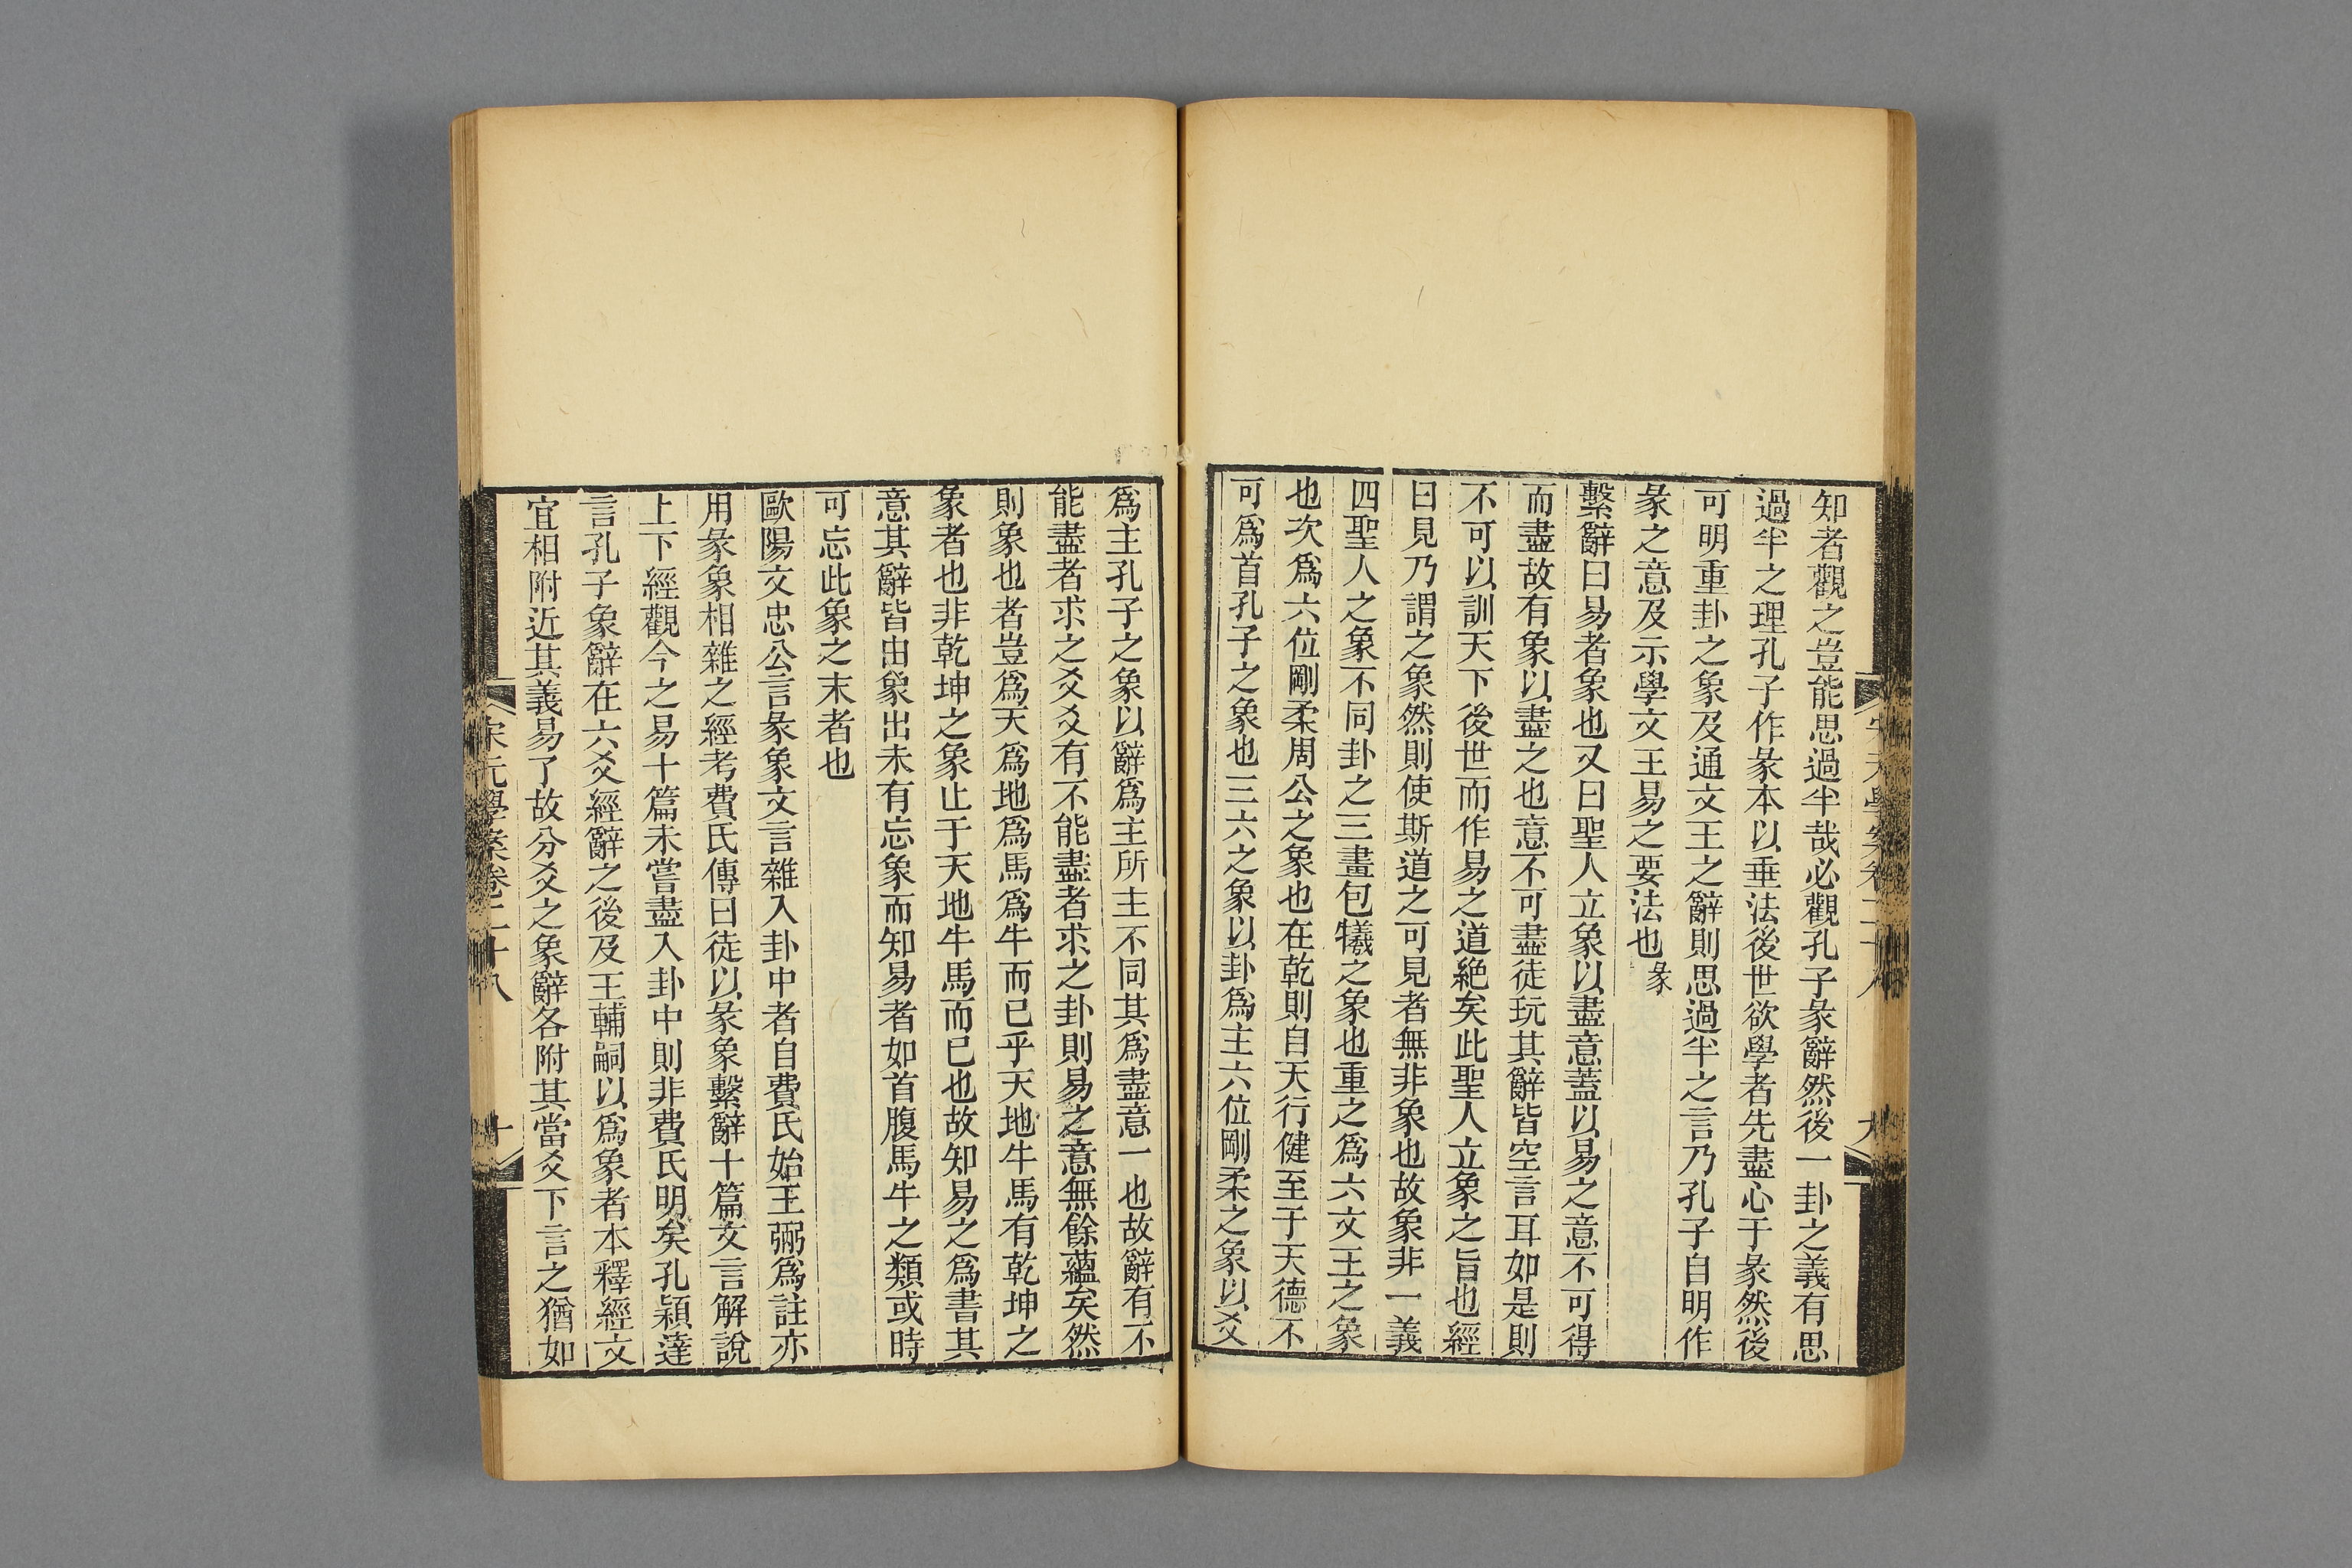 知者觀之豈能思過半哉必觀孔子彖辭然後一卦之義有思
過半之理孔子作彖本以垂法後世欲學者先盡心于彖然後
可明重卦之象及通文王之辭則思過半之言乃孔子自明作
彖之意及示學文王易之要法也彖
繫辭曰易者象也又曰聖人立象以盡意蓋以易之意不可得
而盡故有象以盡之也意不可盡徒玩其辭皆空言耳如是則
不可以訓天下後世而作易之道絕矣此聖人立象之旨也經
曰見乃謂之象然則使斯道之可見者無非象也故象非一義
四聖人之象不同卦之三畫包犧之象也重之為六文王之象
也次為六位剛柔周公之象也在乾則自天行健至于天德不
可為首孔子之象也三六之象以卦為主六位剛柔之象以爻
為主孔子之象以辭為主所主不同其為盡意一也故辭有不
能盡者求之爻爻有不能盡者求之卦則易之意無餘蘊矣然
則象也者豈為天為地為馬為牛而已乎天地牛馬有乾坤之
象者也非乾坤之象止于天地牛馬而已也故知易之為書其
意其辭皆由象出未有忘象而知易者如首腹馬牛之類或時
可忘此象之末者也
歐陽文忠公言彖象文言雜入卦中者自費氏始王弼為註亦
用彖象相雜之經考費氏傳曰徒以彖象繫辭十篇文言解說
上下經觀今之易十篇未嘗盡入卦中則非費氏明矣孔穎達
言孔子象辭在六爻經辭之後及王輔嗣以為象者本釋經文
宜相附近其義易了故分爻之象辭各附其當爻下言之猶如
宋元學案卷二十八